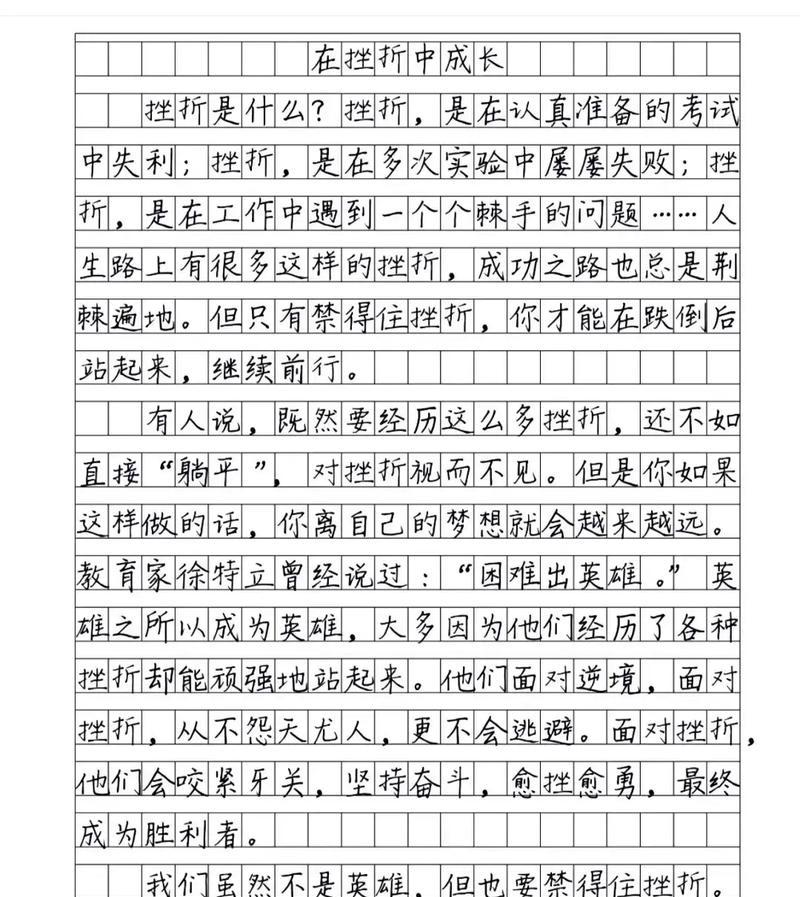 在挫折中成长
挫折是什么?挫折,是在认真准备的考试
中失利;挫折,是在多次实验中屡屡失败;挫
折,是在工作中遇到一个个棘手的问题……人
生路上有很多这样的挫折,成功之路也总是荆
棘遍地。但只有禁得住挫折,你才能在跌倒后
站起来,继续前行。
有人说,既然要经历这么多挫折,还不如
直接“躺平”,对挫折视而不见。但是你如果
这样做的话,你离自己的梦想就会越来越远。
教育家徐特立曾经说过:“困难出英雄。”英
雄之所以成为英雄,大多因为他们经历了各种
挫折却能顽强地站起来。他们面对逆境,面对
挫折,从不怨天尤人,更不会逃避。面对挫折,
他们会咬紧牙关,坚持奋斗,愈挫愈勇,最终
成为胜利者。
我们虽然不是英雄,但也要禁得住挫折。